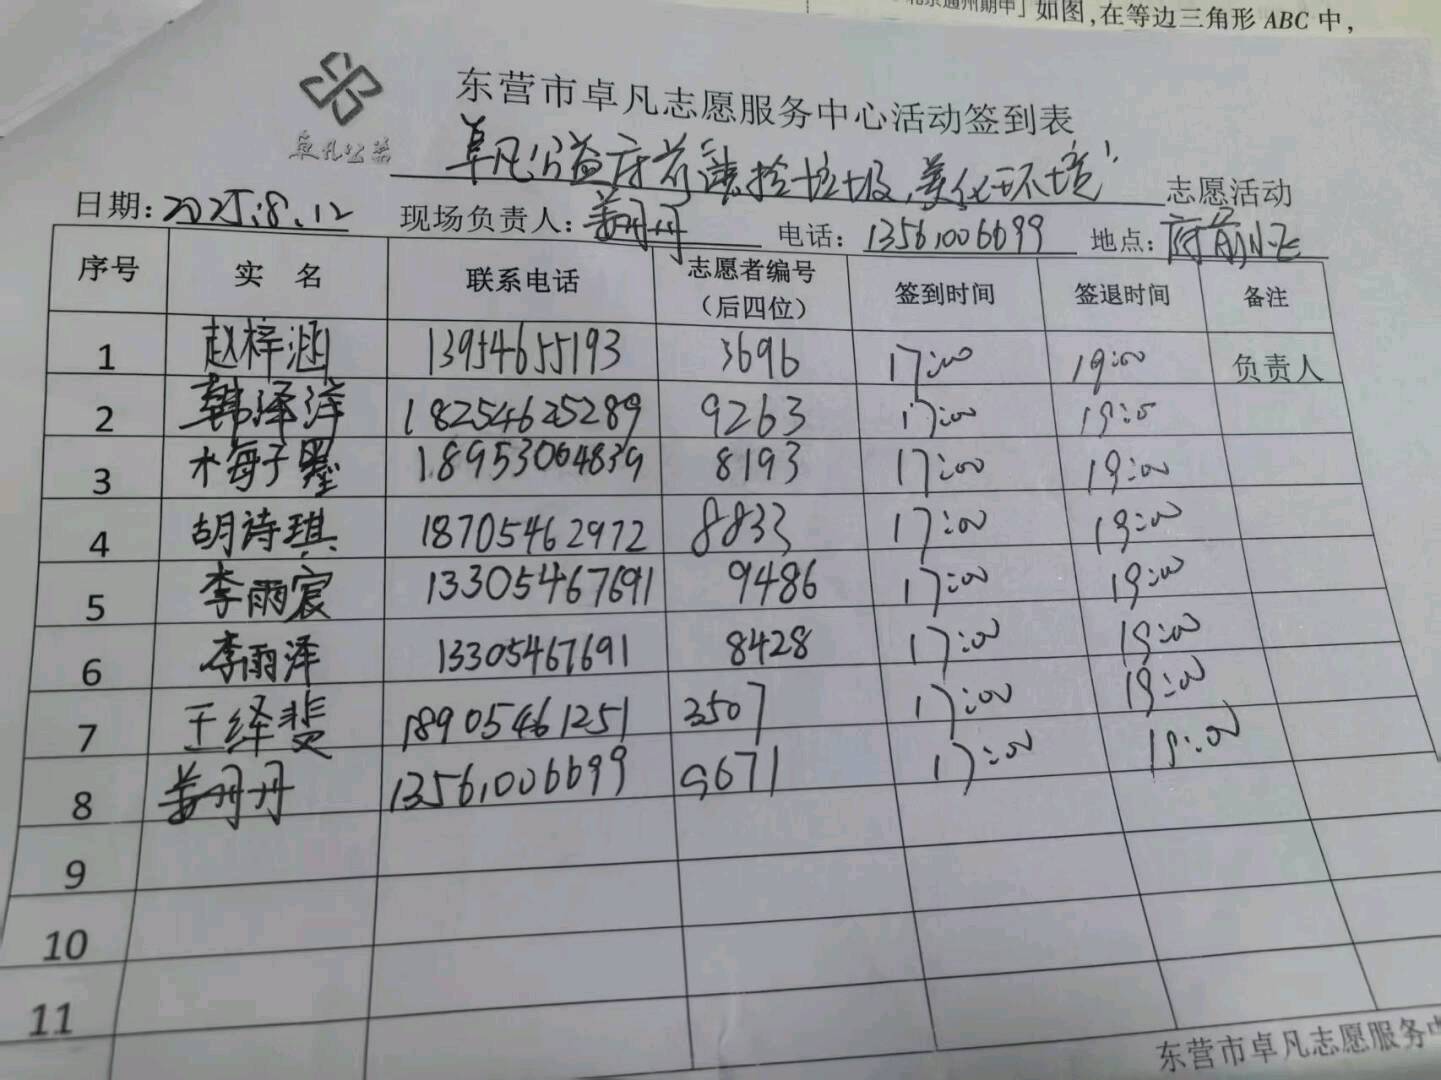 北京通州期中」如图,在等边三角形 ABC 中,
卓凡公益
东营市卓凡志愿服务中心活动签到表
卓凡公益府前 捡垃圾,美化环境" 志愿活动
日期: 2025.8.12 现场负责人: 姜丹丹 电话: 13561006699 地点: 府前
序号 实 名 联系电话 志愿者编号(后四位) 签到时间 签退时间 备注
1 赵梓涵 13954655193 3696 17:00 19:00 负责人
2 韩泽洋 18254625289 9263 17:00 19:00
3 木每子墨 18953064839 8193 17:00 19:00
4 胡诗琪 18705462972 8833 17:00 19:00
5 李雨宸 13305467691 9486 17:00 19:00
6 李雨泽 13305467691 8428 17:00 19:00
7 王绎斐 18905461251 3507 17:00 19:00
8 姜丹丹 13561006699 9671 17:00 19:00
9
10
11
东营市卓凡志愿服务中